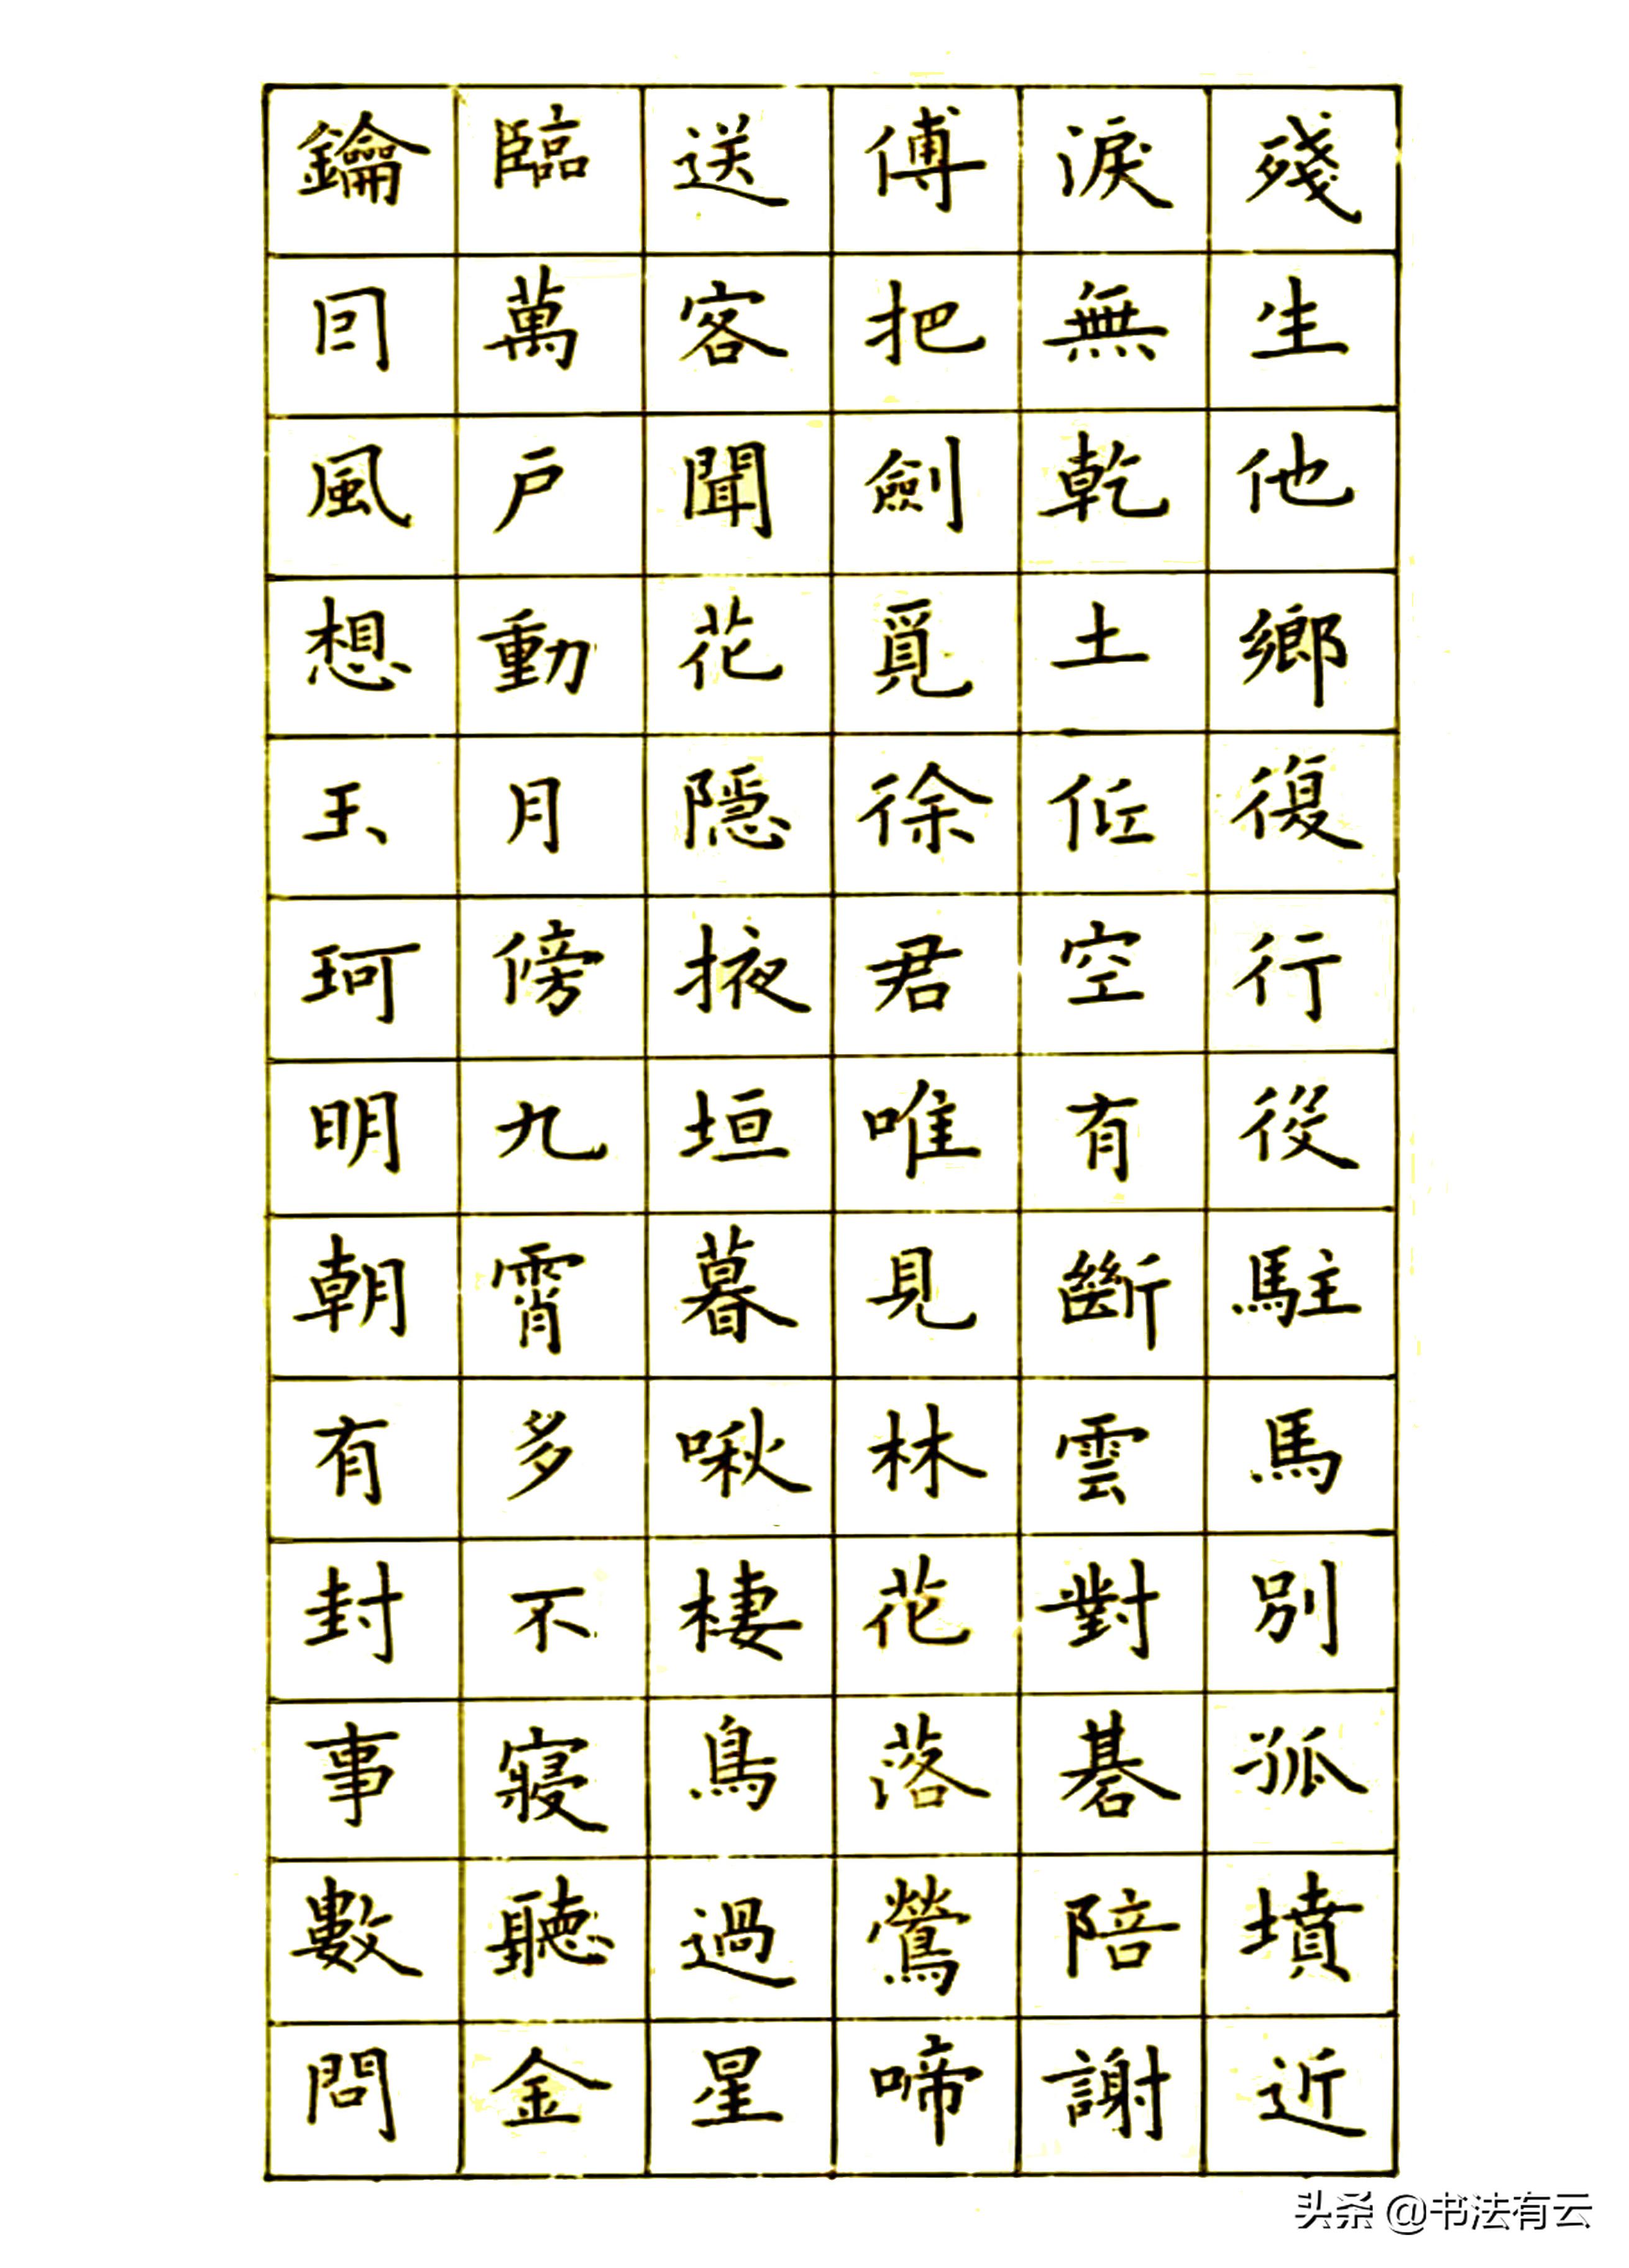 殘生他鄉復行役駐馬別孤墳近
淚無乾土低空有斷雲對碁陪謝
傅把劍覓徐君唯見林花落鶯啼
送客聞花隱掖垣暮啾棲鳥過星
臨萬户動月傍九霄多不寢聽金
鑰囙風想玉珂明朝有封事數問
头条 @书法有云